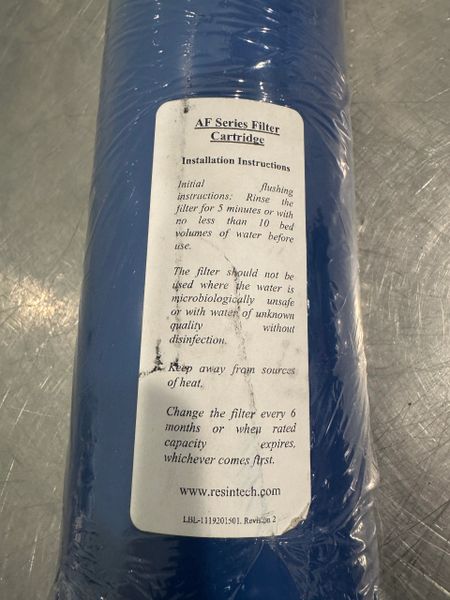 AF Series Filter
Cartridge
Installation Instructions
Initial flushing
instructions: Rinse the
filter for 5 minutes or with
no less than 10 bed
volumes of water before
use.
The filter should not be
used where the water is
microbiologically unsafe
or with water of unknown
quality without
disinfection.
Keep away from sources
of heat.
Change the filter every 6
months or when rated
capacity expires,
whichever comes first.
www.resintech.com
LBL-1119201501. Revision 2